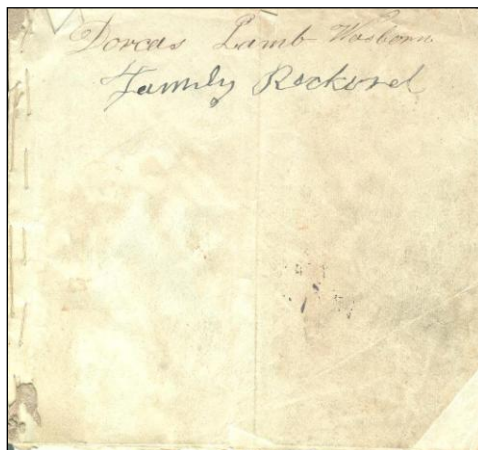 Dorcas Lamb Wasborn
Family Reckord